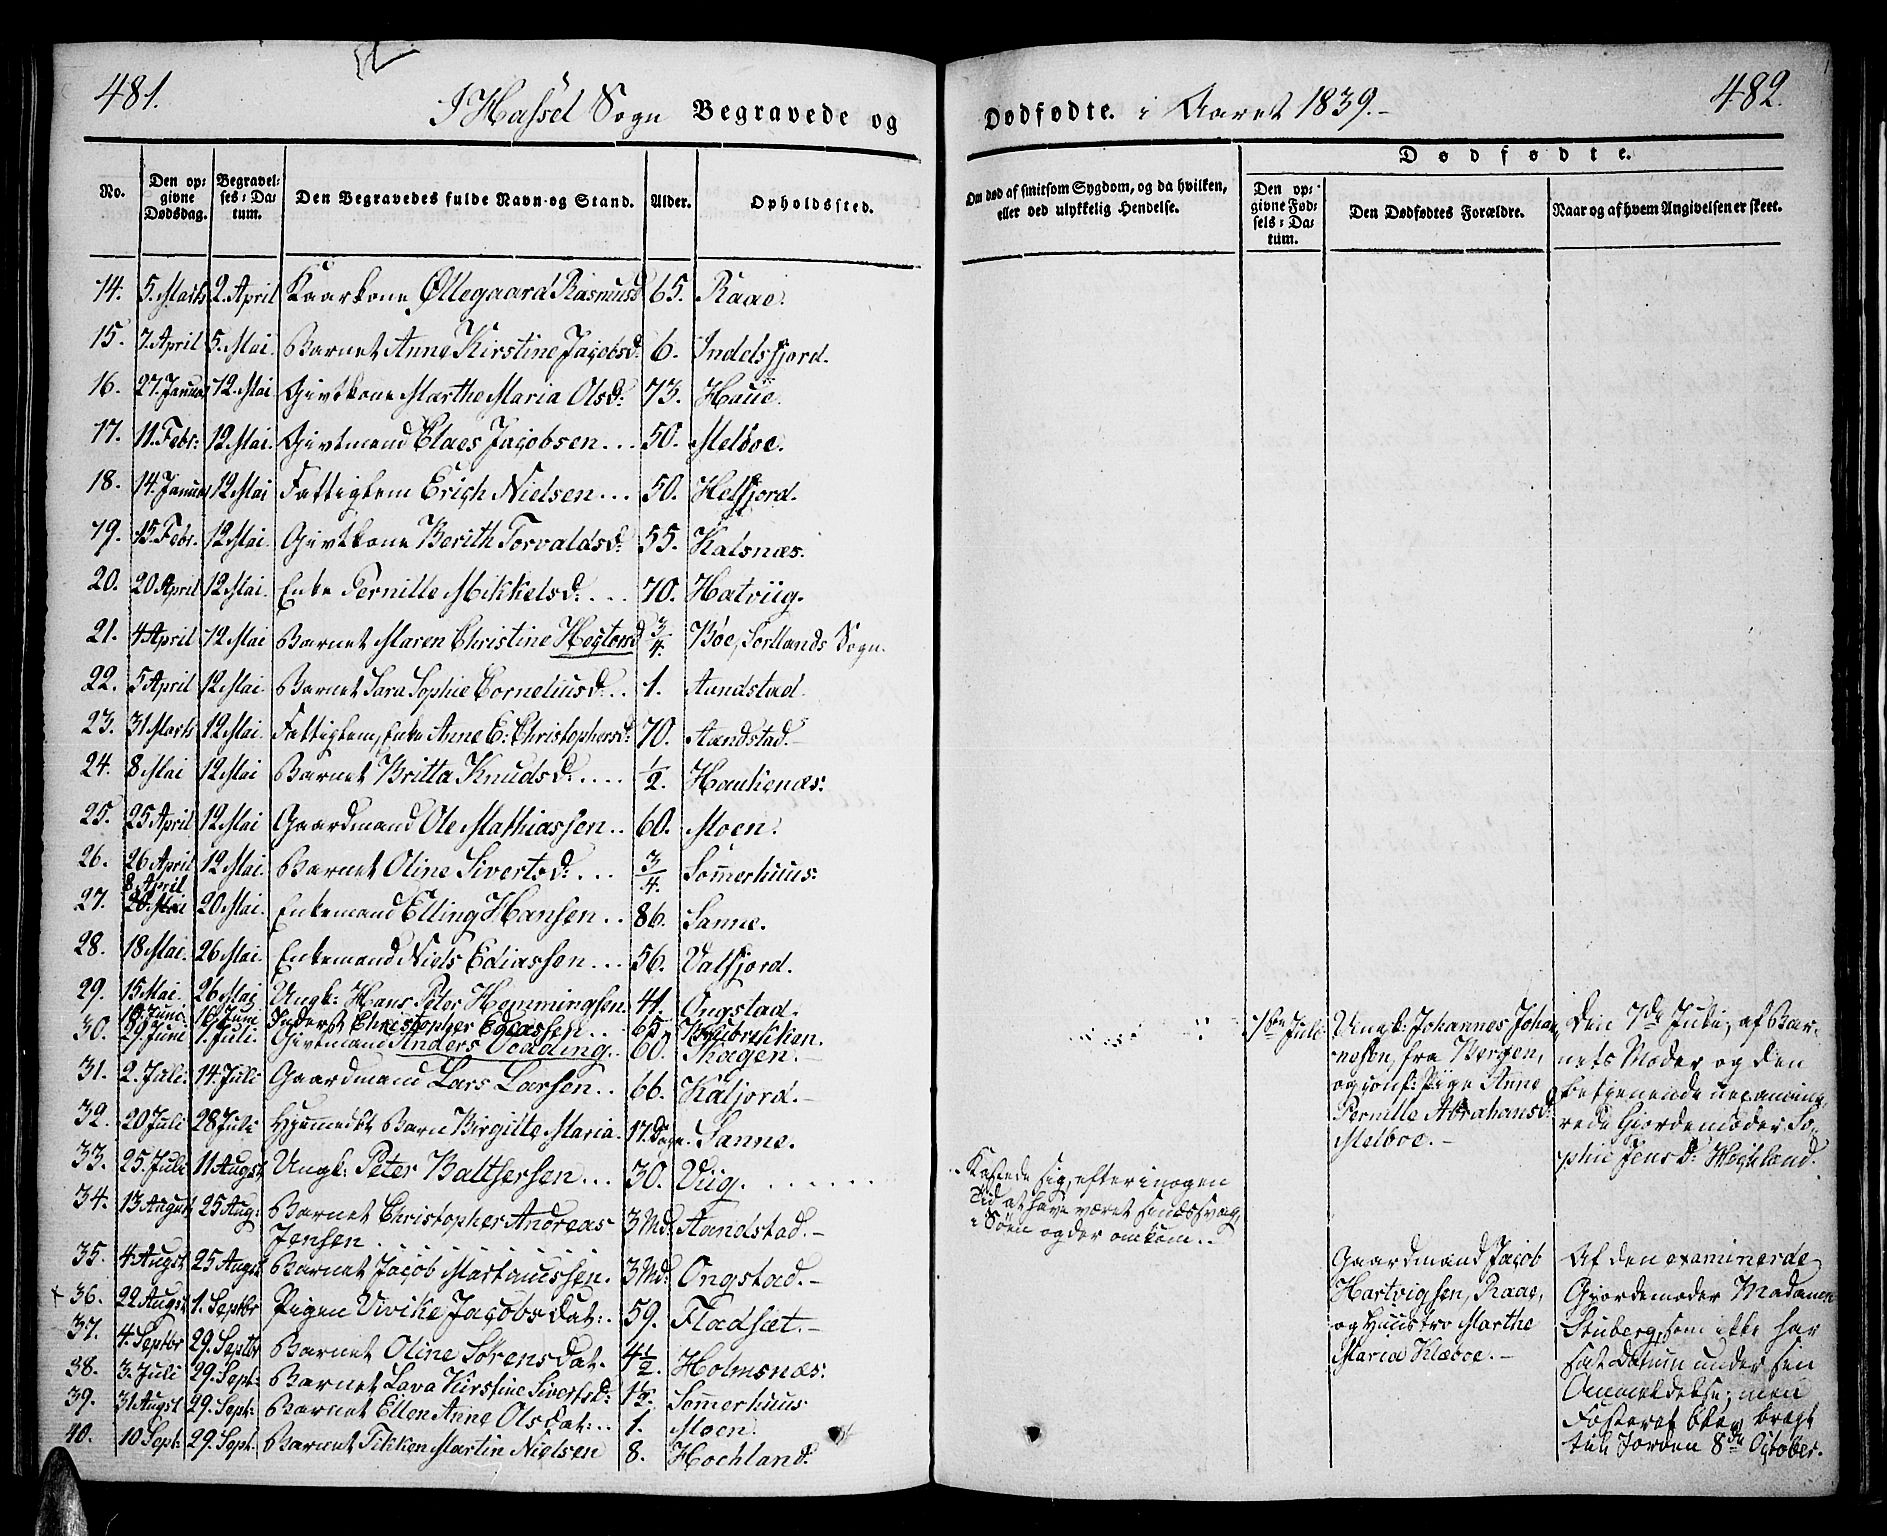 481.
I Hassel Sogn Begravede og
No.
Den op=
givne
Dødsdag.
Begravel=
ses=Da=
tum.
Den Begravedes fulde Navn og Stand.
Alder.
Opholdssted.
14. 5. Marts 2. April Kaarkone Øllegaard Rasmusd 65. Raae.
15. 7. April 5. Mai. Barnet Anne Kirstine Jacobsd: 6. Indelsfjord.
16. 27. Januar 12. Mai Givtkone Marthe Maria Olsd: 73. Haue.
17. 11. Febr: 12 Mai. Givtmand Claes Jacobsen... 50. Melboe.
18. 14. Januar 12 Mai Fattiglem Erich Nielsen... 50. Helfjord.
19. 15. Febr. 12 Mai. Givtkone Berith Torvaldsd: 55. Kalsnæs.
20. 20 April 12 Mai. Enke Pernille Mikkelsd:... 70. Hatviig.
21. 4 April 12 Mai Barnet Maren Christine 3/4. Bøe, Sortlands Sogn.
22. 5 April 12 Mai. Barnet Sara Sophie Corneliusd:.. 1. Aandstad.
23. 31 Marts 12 Mai. Fattiglem, Enke Anne E: Christophersd: 70. Aandstad.-
24. 8 Mai 12 Mai Barnet Britta Knudsd:.... 1/2. Haukenæs:
25. 25 April 12 Mai Gaardmand Ole Mathiassen.. 60. Moen.
26. 26 April 12 Mai. Barnet Oline Sivertsd:... 3/4. Sommerhuus:
8 April
27. 20 Mai 20 Mai. Enkemand Elling Hansen.. 86. Sanne.
28. 18 Mai. 26 Mai. Enkemand Niels Ediassen... 56. Valfjord.
29. 15 Mai. 26 Mai Ungk: Hans Peter Hemmingsen. 41. Ongstad.
16 Juni Inderst Christopher Ediassen.. 65.
30. 29. Juni 1. Juli. Givtmand Anders 60. Skagen.-
31. 2. Juli. 14. Juli Gaardmand Lars Larsen.. 66. Kaljord.-
32. 20 Juli 28 Juli Hjemmedbt Barn Birgitte Maria. 17. Dage. Sanne.
33. 25. Juli 11 Augst. Ungk: Peter Balthersen... 30. Viig.......
34. 13 August 25 Aug: Barnet Christopher Andreas 3 Md. Aandstad.-
Jensen.
35. 4 Augst 25 Augst. Barnet Jacob Martinussen. 3 Md: Ongstad.-
+ 36. 22 Augst 1. Septbr Pigen Vivike Jacobsdat:. 59. Fladsæt.-
37. 4. Septbr 29. Septbr Barnet Oline Sørensdat. 4 1/2. Holmsnæs:
38. 3. Juli 29. Sept: Barnet Lava Kirstine Sivertsd: 1 1/2. Sommerhuus
39. 31 Augst 29. Sept: Barnet Ellen Anne Olsdat:.. 1. Moen.
40. 10 Sept: 29. Sept. Barnet Tikken Martin Nielsen 8. Hochland.
Dødfødte. i Aaret 1839.-
482.
Om død af smitsom Sygdom, og da hvilken,
eller ved ulykkelig Hendelse.
Dødfødte.
Den op=
givne Fød=
sels=Da=
tum.
Den Dødfødtes Forældre.
Naar og af hvem Angivelsen er skeet.
Juli
Ungk: Johannes Johan
nesen, fra Bergen,
og conf: Pige Anne
Pernille Abrahamsd:
Melboe.-
Den 7de Juli, af Bar=
nets Moder og den
betjenende uexamine=
rede Gjordemoder So=
phie Jensd: Hochland.
.. Kastede sig, efter i nogen
Tid at have været sindssvag,
i Søen og der omkom..
Gaardmand Jacob
Hartvigsen, Raae,
og Huustro Marthe
Maria Klæboe.-
Af den examinerde
Gjordemoder Madame
Stuberg, som ikke har
sat Datum under sin
Anmeldelse; men
Fosteret blev bragt
til Jorden 8de October.